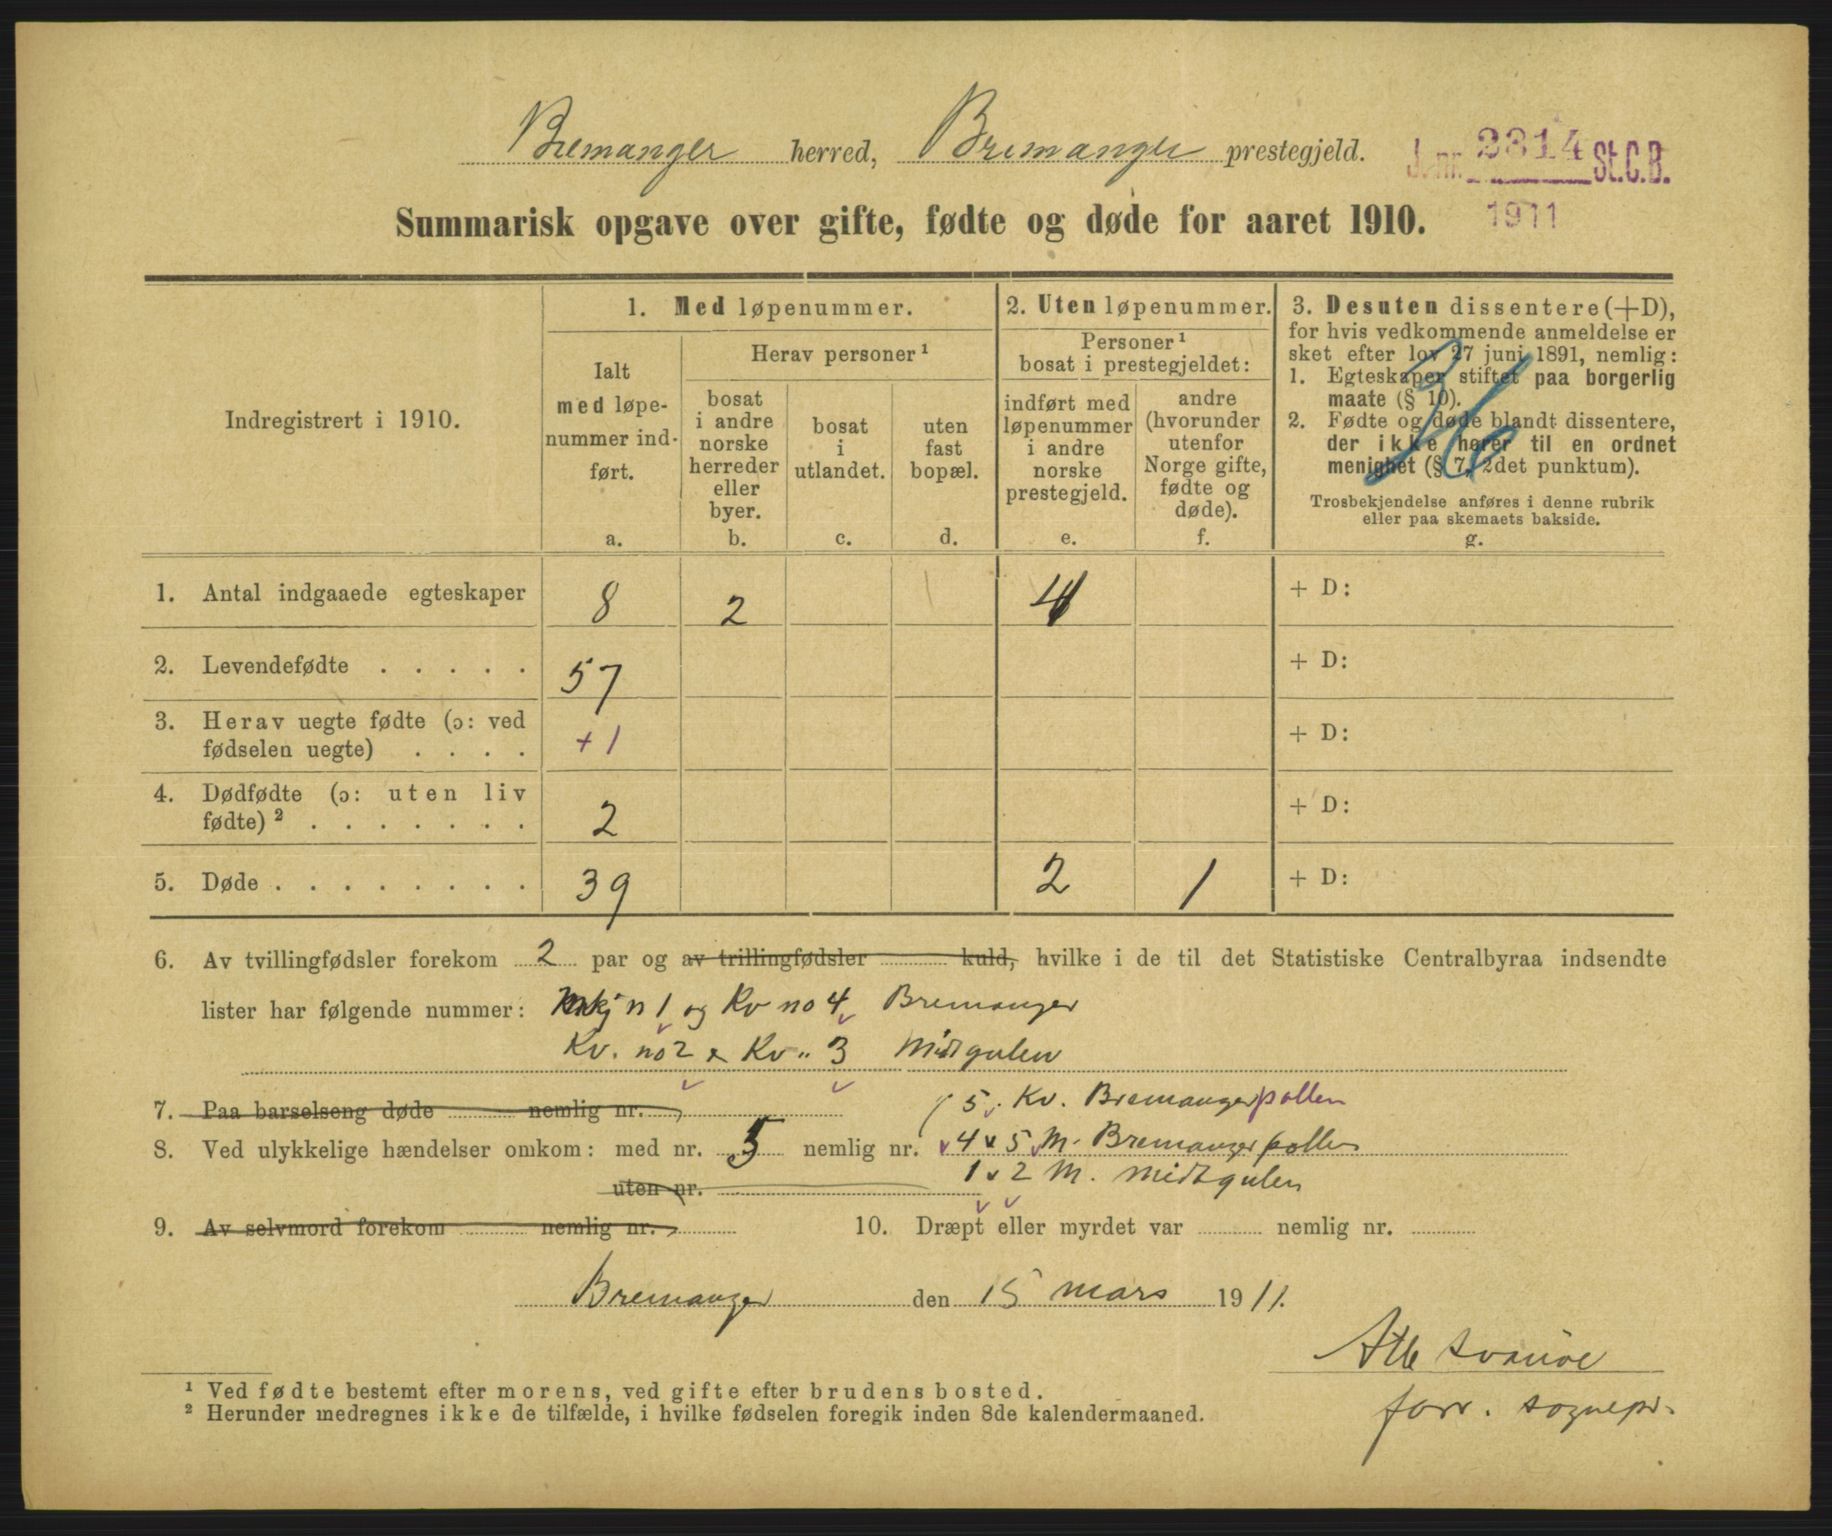 Bremanger herred, Bremanger prestegjeld.
J. nr. 2314 St.C.B.
1911
Summarisk opgave over gifte, fødte og døde for aaret 1910.
Indregistrert i 1910.
1. Med løpenummer.
Ialt
med løpe-
nummer ind-
ført.
a.
Herav personer ¹
bosat
i andre
norske
herreder
eller
byer.
b.
bosat
i
utlandet.
c.
uten
fast
bopæl.
d.
2. Uten løpenummer.
Personer ¹
bosat i prestegjeldet:
indført med
løpenummer
i andre
norske
prestegjeld.
e.
andre
(hvorunder
utenfor
Norge gifte,
fødte og
døde).
f.
3. Desuten dissentere (+D),
for hvis vedkommende anmeldelse er
sket efter lov 27 juni 1891, nemlig:
1. Egteskaper stiftet paa borgerlig
maate (§ 10).
2. Fødte og døde blandt dissentere,
der ikke hører til en ordnet
menighet (§ 7, 2det punktum).
Trosbekjendelse anføres i denne rubrik
eller paa skemaets bakside.
g.
36
1. Antal indgaaede egteskaper 8 2 4 + D:
2. Levendefødte . . . . . 57 + D:
3. Herav uegte fødte (ɔ: ved
fødselen uegte) . . . . + 1 + D:
4. Dødfødte (ɔ: uten liv
fødte) ² . . . . . . . 2 + D:
5. Døde . . . . . . . . 39 2 1 + D:
6. Av tvillingfødsler forekom 2 par og av trillingfødsler kuld, hvilke i de til det Statistiske Centralbyraa indsendte
lister har følgende nummer: n 1 og Kv no 4 Bremanger
Kv. no 2 & Kv " 3 Midtgulen
7. Paa barselseng døde nemlig nr. ( 5. Kv. Bremangerpollen
8. Ved ulykkelige hændelser omkom: med nr. 5 nemlig nr. 4 5 M. Bremangerpollen
uten nr. 1 2 M. Midtgulen
9. Av selvmord forekom nemlig nr. 10. Dræpt eller myrdet var nemlig nr.
Bremanger den 15 mars 1911.
Atle Svanøe
forr. sognepr.
¹ Ved fødte bestemt efter morens, ved gifte efter brudens bosted.
² Herunder medregnes ikke de tilfælde, i hvilke fødselen foregik inden 8de kalendermaaned.